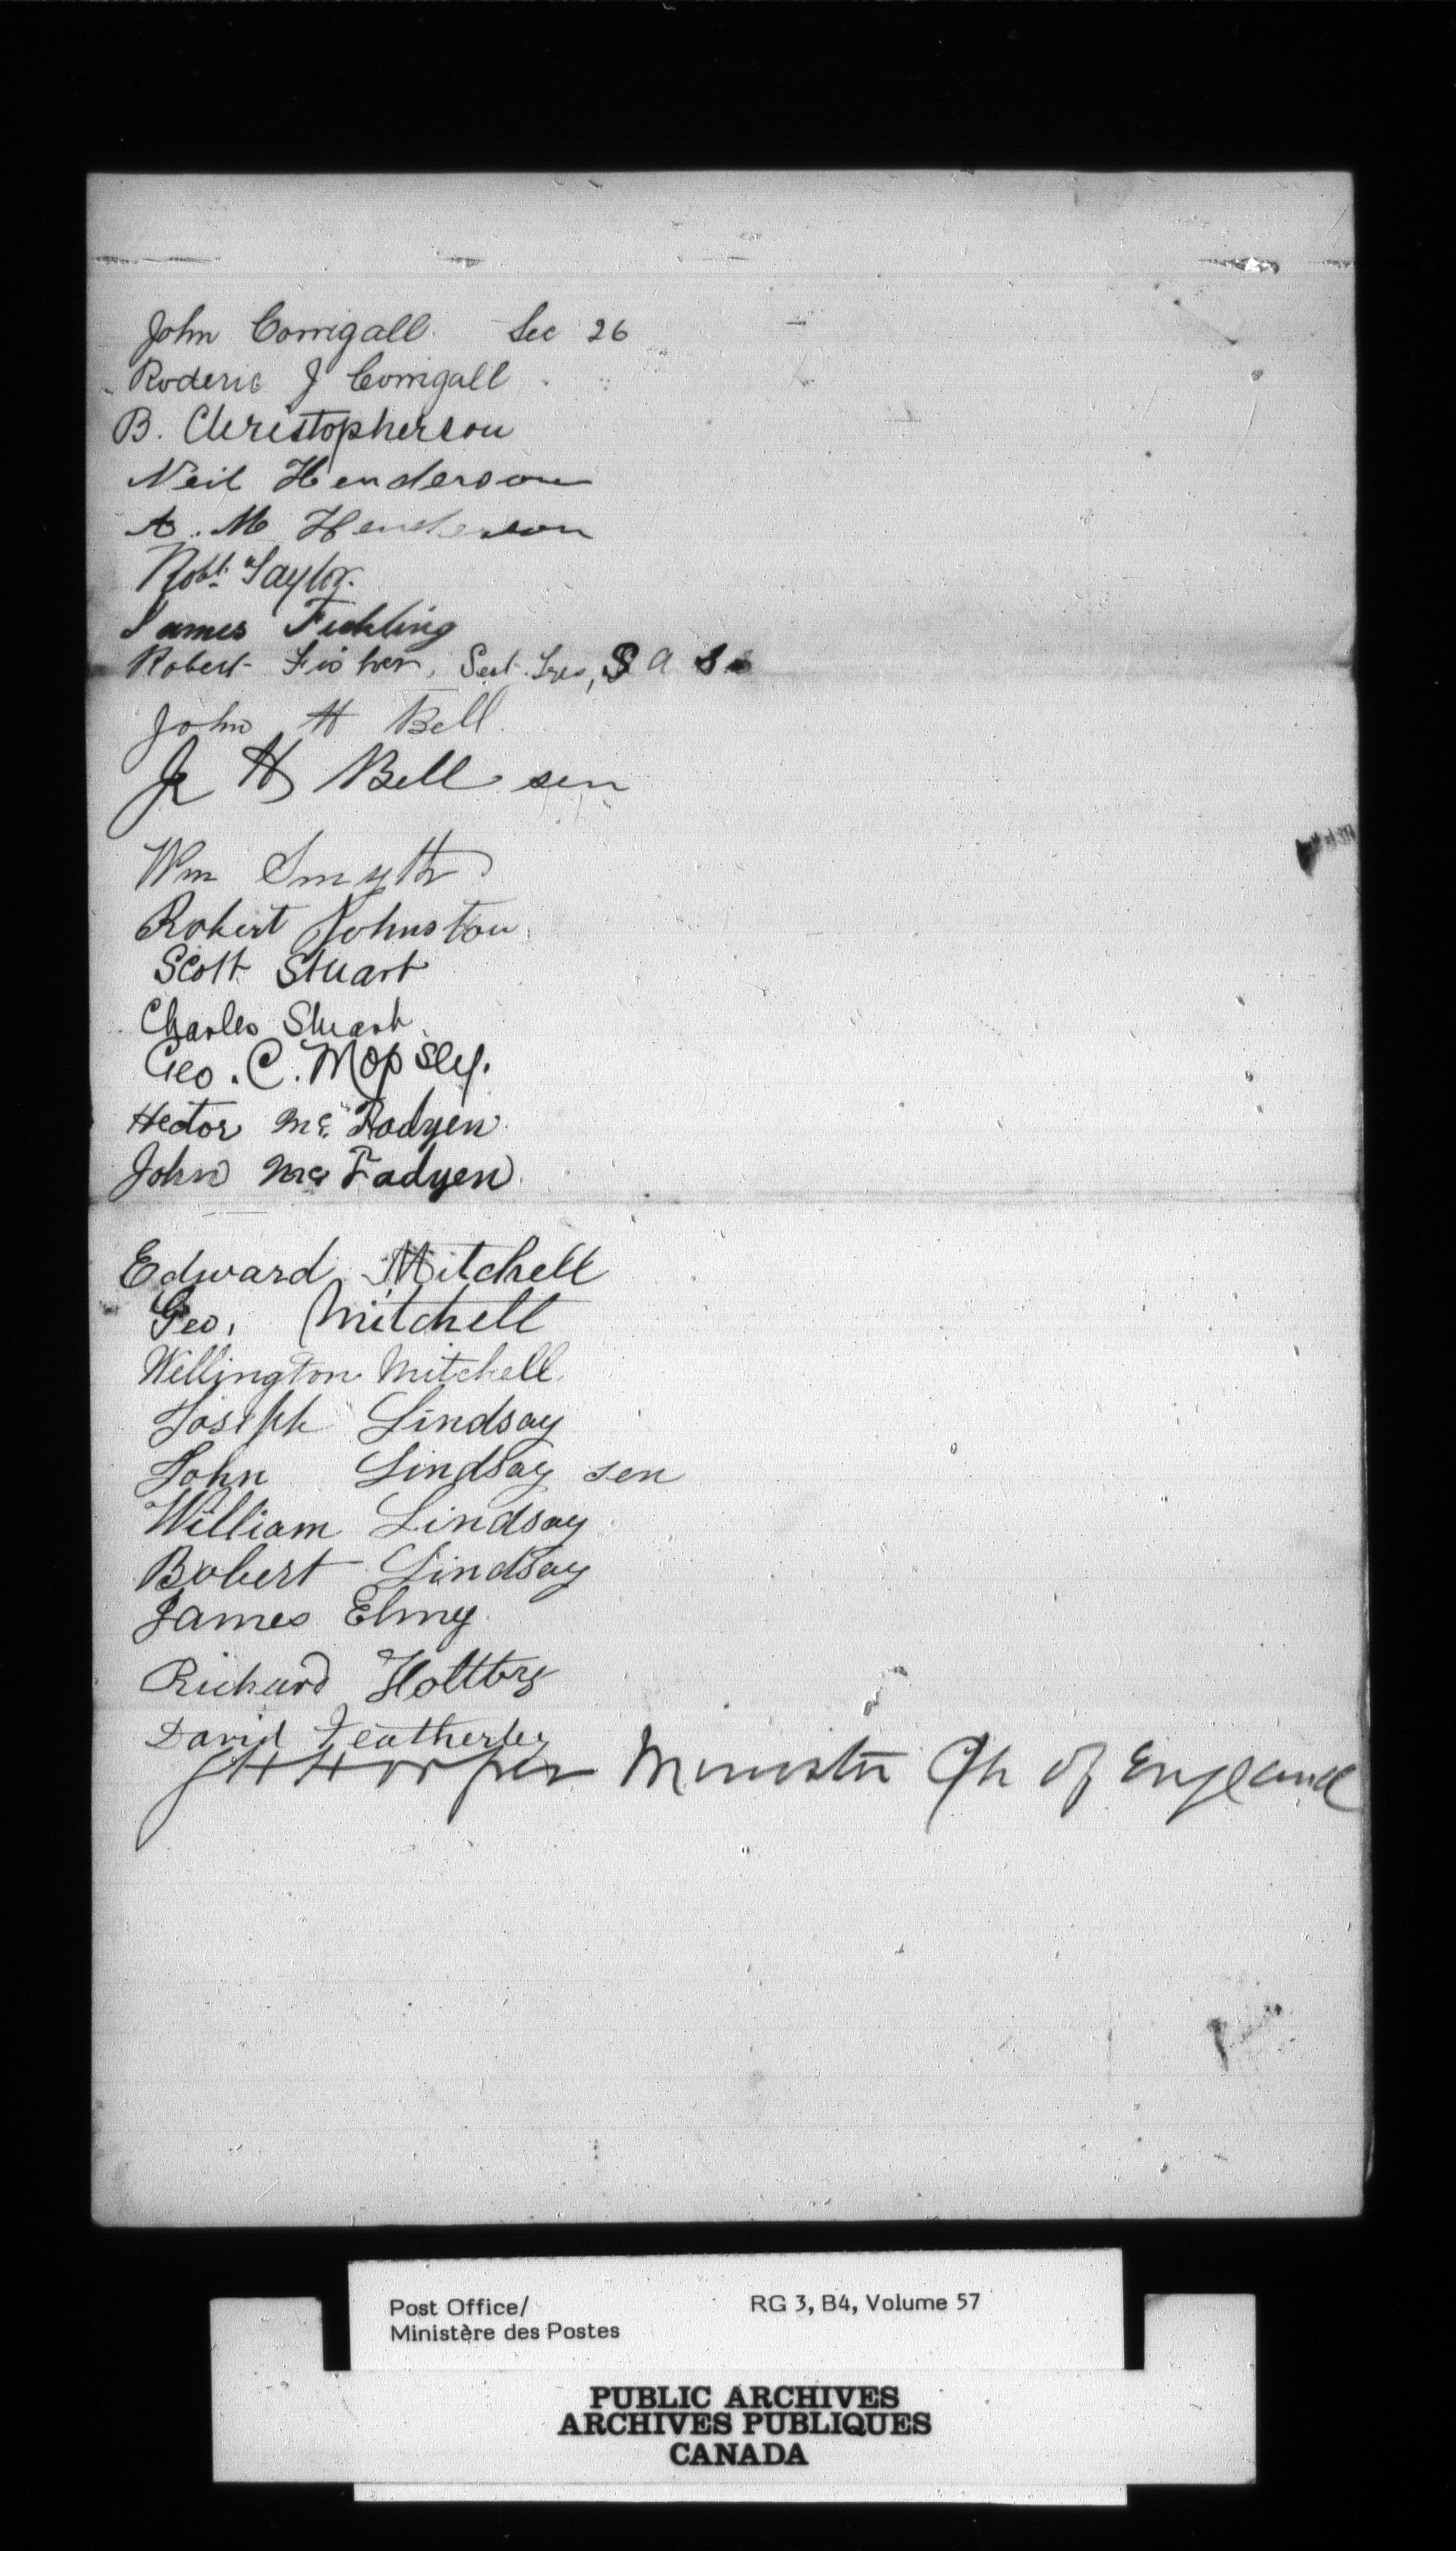 John Corrigall. Sec 26
Roderic J Corrigall
B. Christopherson
Neil Henderson
A. M Henderson
Robt. Taylor.
James Fickling
Robert Fisher, Sect. Tres, S a S
John H Bell.
J H Bell sen
Wm Smyth
Robert Johnston
Scott Stuart
Charles Stuart
Geo. C. Mopsley.
Hector Mc Fadyen
John Mc Fadyen
Edward Mitchell
Geo. Mitchell
Wellington Mitchell
Joseph Lindsay
John Lindsay sen
William Lindsay
Robert Lindsay
James Elmy
Richard
David Featherley
Minister Ch of England
Post Office/ RG 3, B4, Volume 57
Ministère des Postes
PUBLIC ARCHIVES
ARCHIVES PUBLIQUES
CANADA